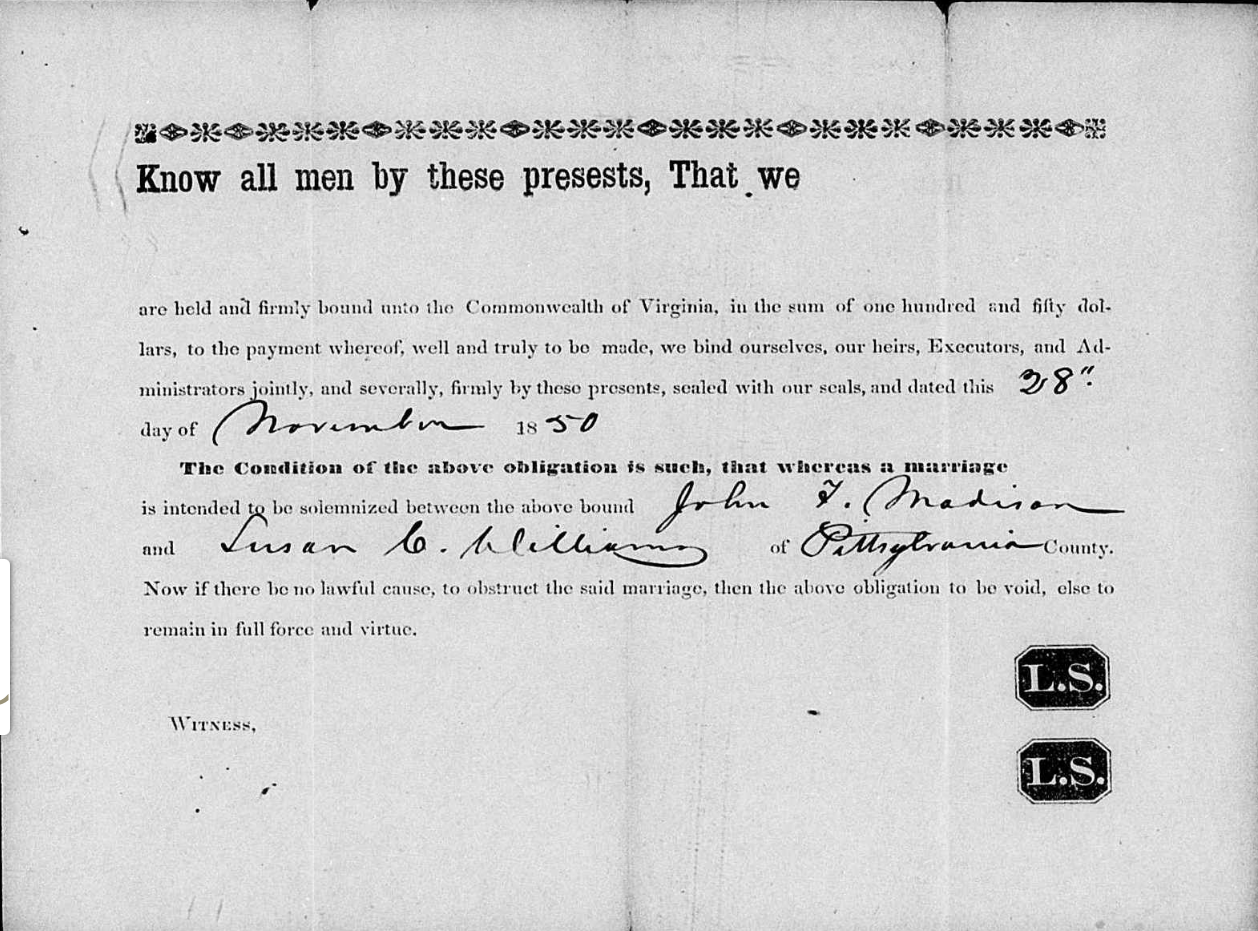 Know all men by these presests, That we
are held and firmly bound unto the Commonwealth of Virginia, in the sum of one hundred and fifty dol-
lars, to the payment whereof, well and truly to be made, we bind ourselves, our heirs, Executors, and Ad-
ministrators jointly, and severally, firmly by these presents, sealed with our seals, and dated this 28"
day of November 1850
The Condition of the above obligation is such, that whereas a marriage
is intended to be solemnized between the above bound John F. Madison
and Susan C. Williams of Pittsylvania County.
Now if there be no lawful cause, to obstruct the said marriage, then the above obligation to be void, else to
remain in full force and virtue.
L.S.
Witness,
L.S.